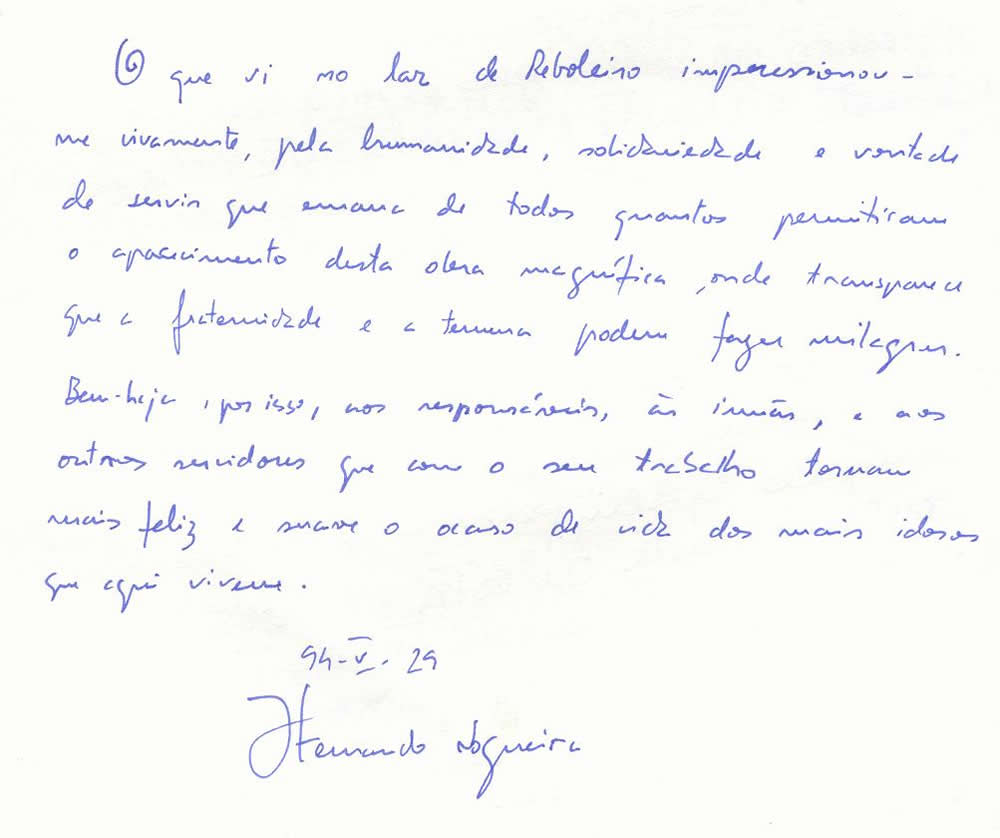 O que vi no lar de Reboleiro impressionou-
me vivamente, pela humanidade, solidariedade e vontade
de servir que emana de todos quantos permitiram
o aparecimento desta obra magnífica, onde transparece
que a fraternidade e a ternura podem fazer milagres.
Bem-haja, por isso, aos responsáveis, às irmãs, e aos
outros servidores que com o seu trabalho tornam
mais feliz e suave o ocaso de vida dos mais idosos
que aqui vivem.
94-V-29
Fernando Nogueira